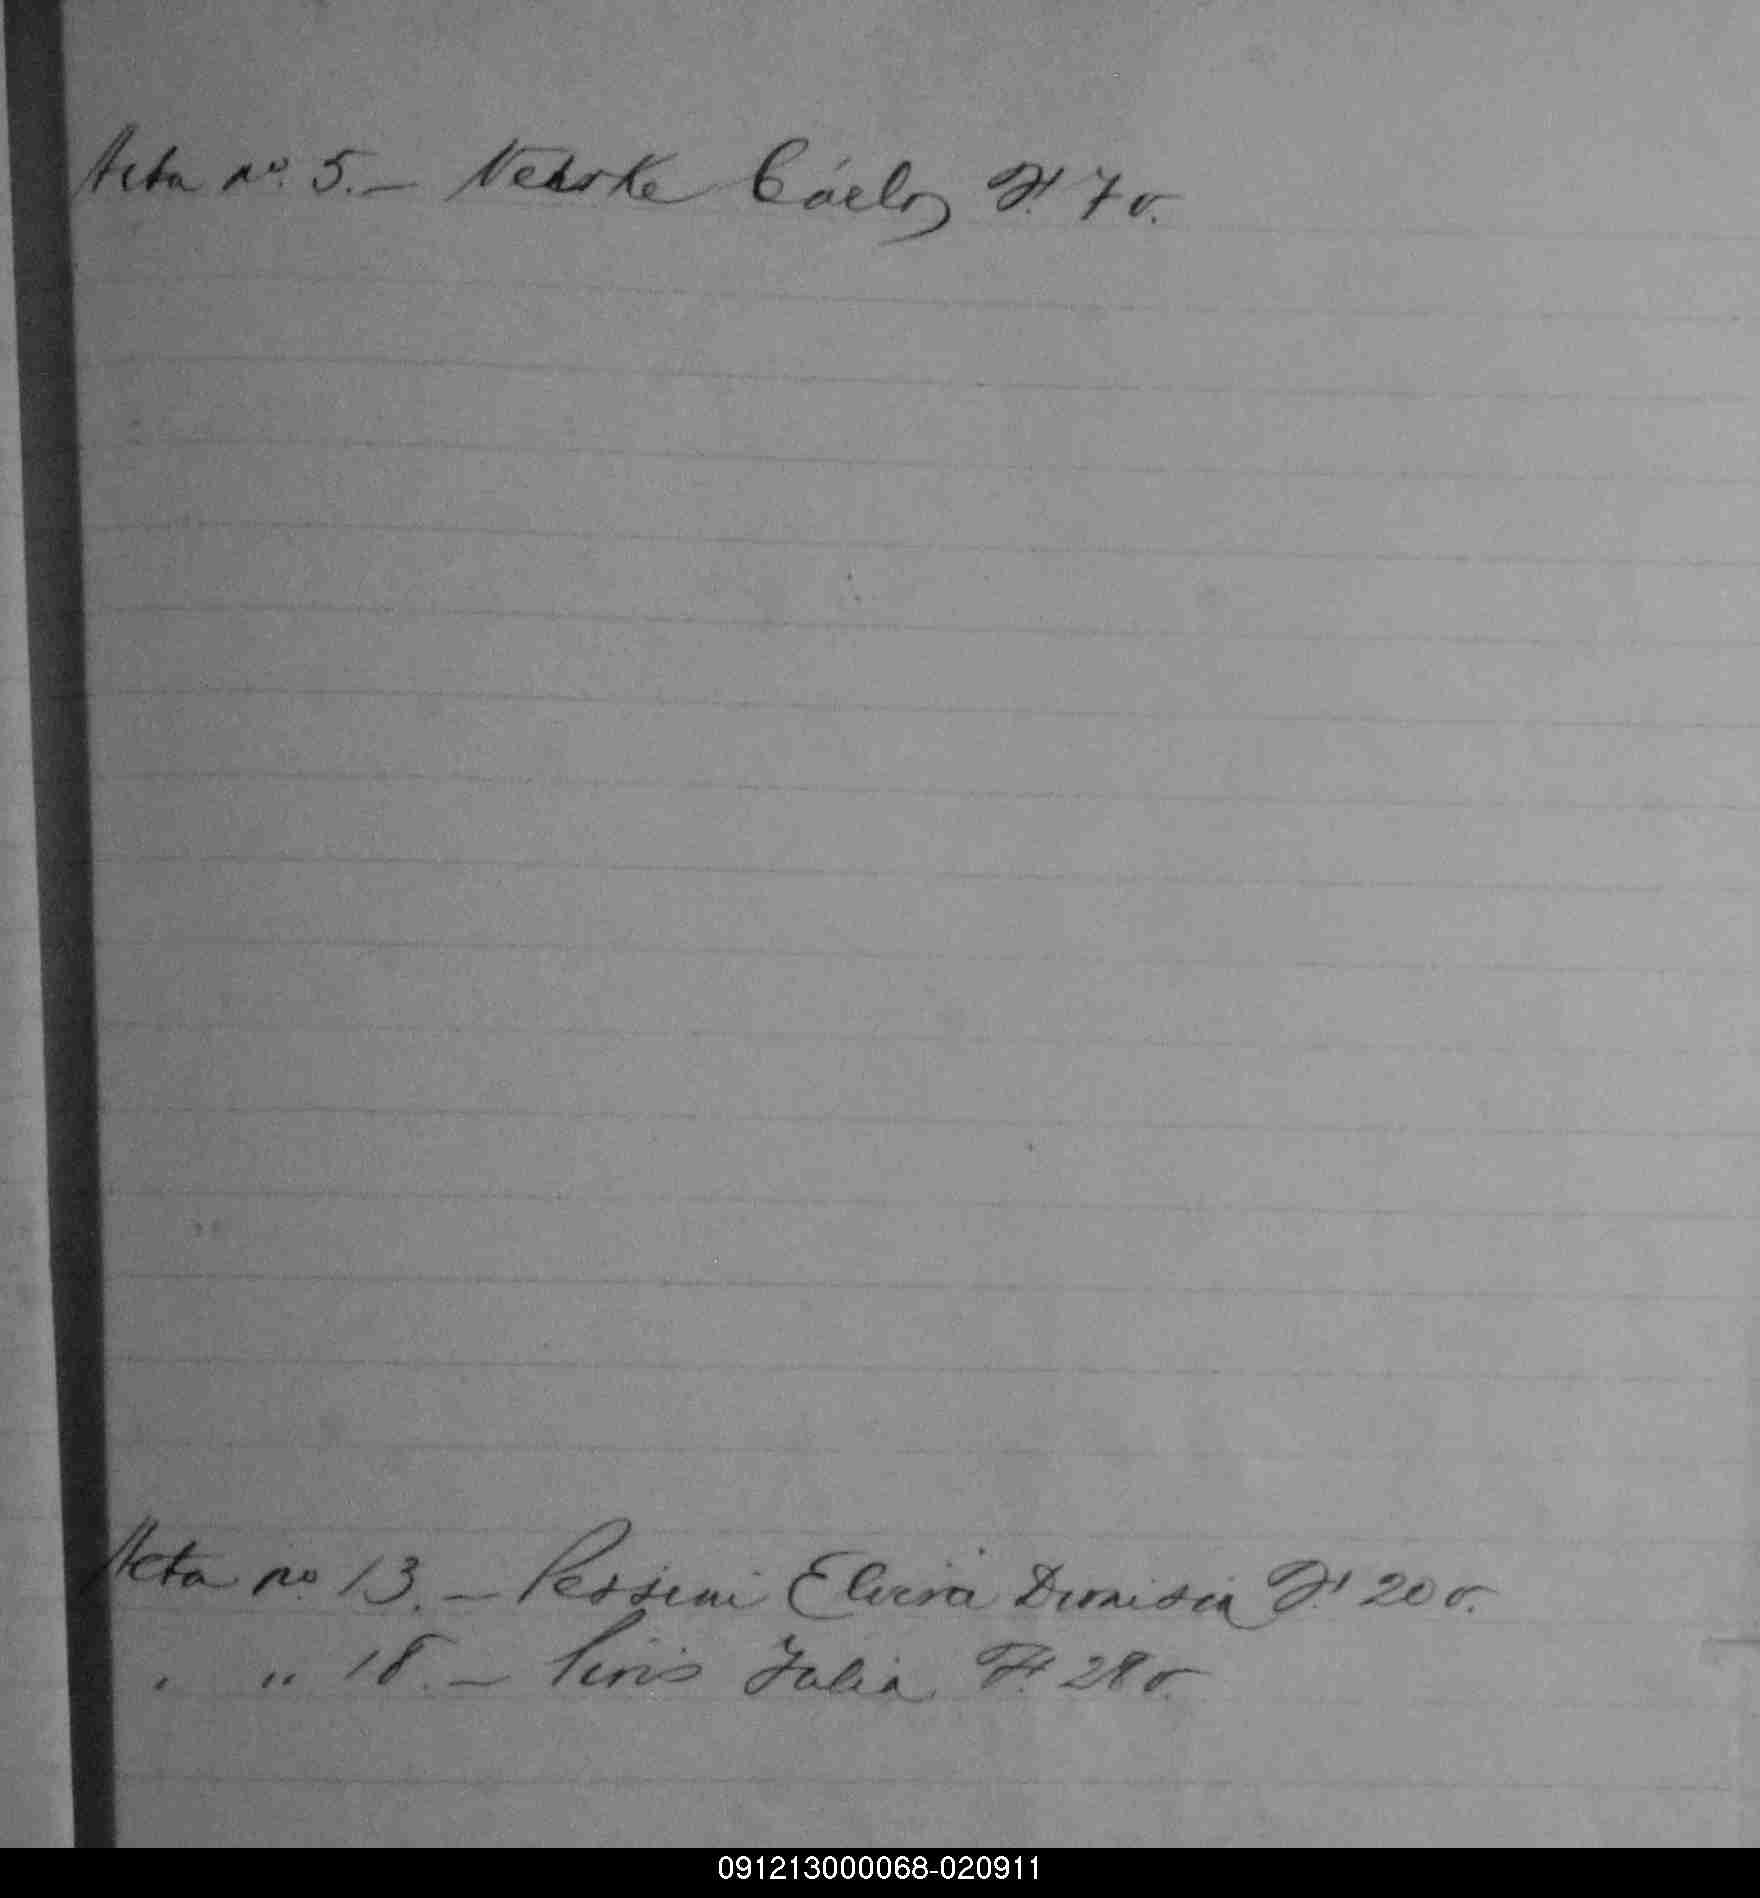 Acta nº 5.- Nehrke Cárlos Fº 7 v.
Acta nº 13.- Pessini Elvira Dionisia Fº 20 v.
" " 18.- Piris Julia Fº 28 v.
091213000068-020911